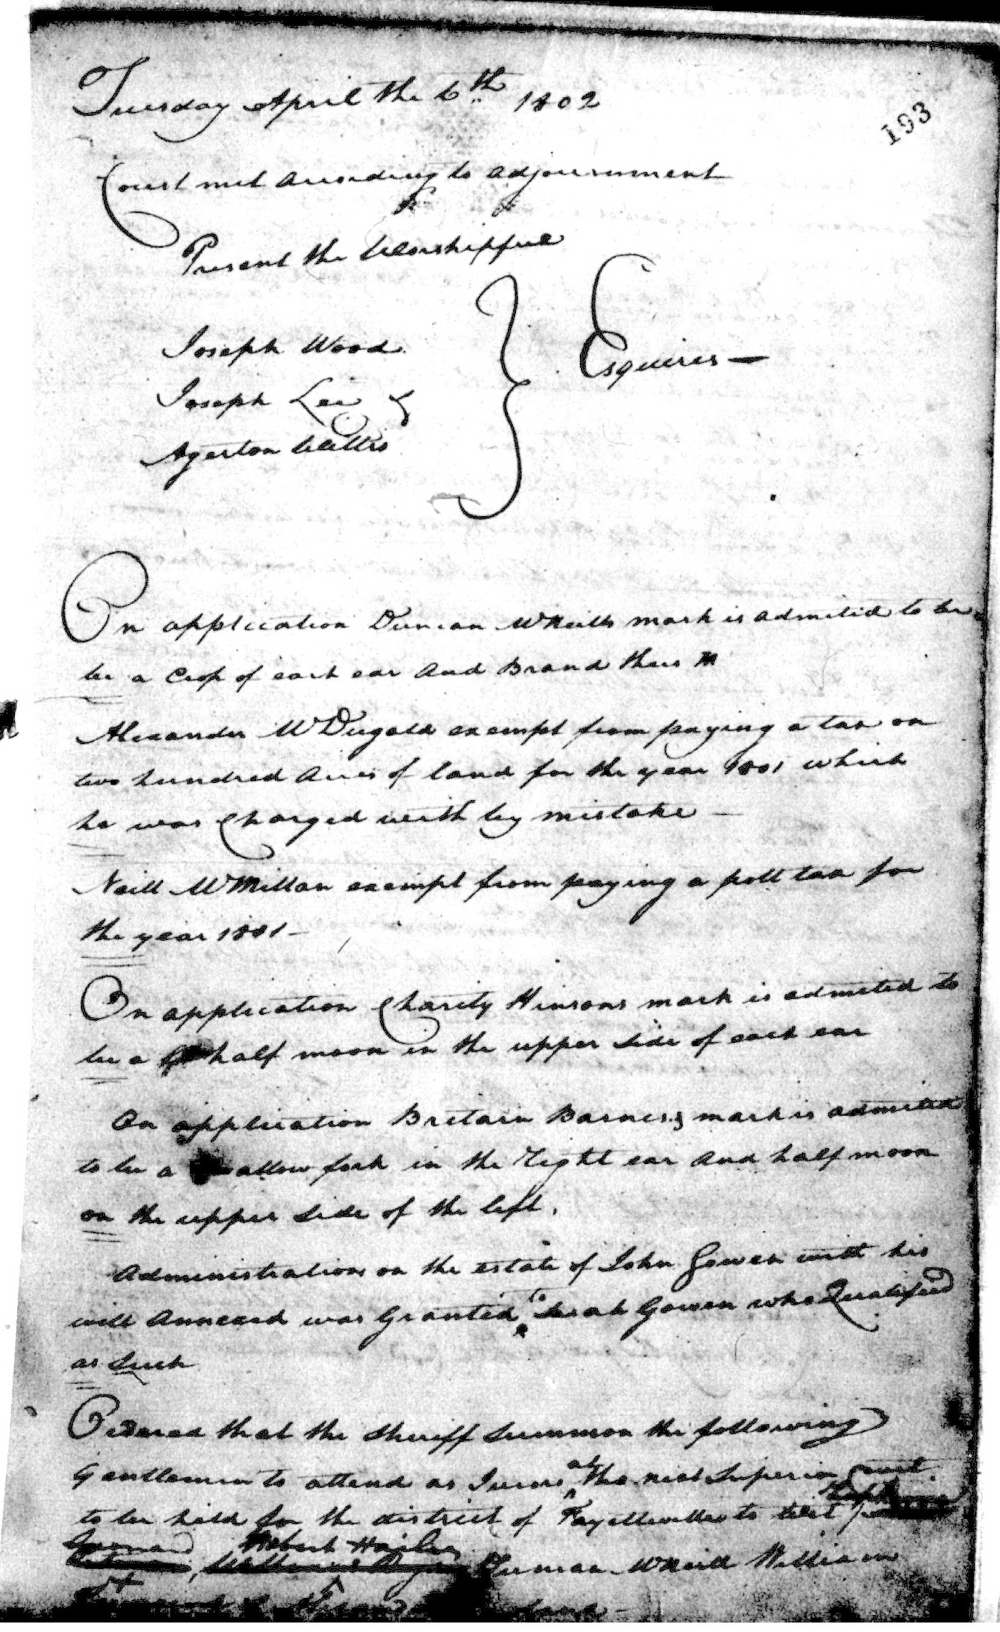 Tuesday April the 6th 1802
193
Court met according to adjournment
Present the Worshipfull
Joseph Wood
Joseph Lee &
Agerton Willis
Esquires —
On application Duncan McNeills mark is admited to be
be a Crop of each ear and Brand thus
Alexander McDugald exempt from paying a tax on
two hundred Acres of land for the year 1801 which
he was Charged with by mistake —
Neill McMillan exempt from paying a poll tax for
the year 1801 —
On application Charity Hinsons mark is admited to
be a half moon in the upper side of each ear
On application Britain Barness mark is admited
to be a swallow fork in the right ear and half moon
on the upper side of the left.
Administration on the estate of John Gowen with his
will Annexed was Granted to Sarah Gowen who Qualified
as Such
Ordered that the Sheriff Summon the following
Gentlemen to attend as Jurors at the next Superior Court
to be held for the district of Fayetteville to wit
Robert Hailes
Duncan McNeill William